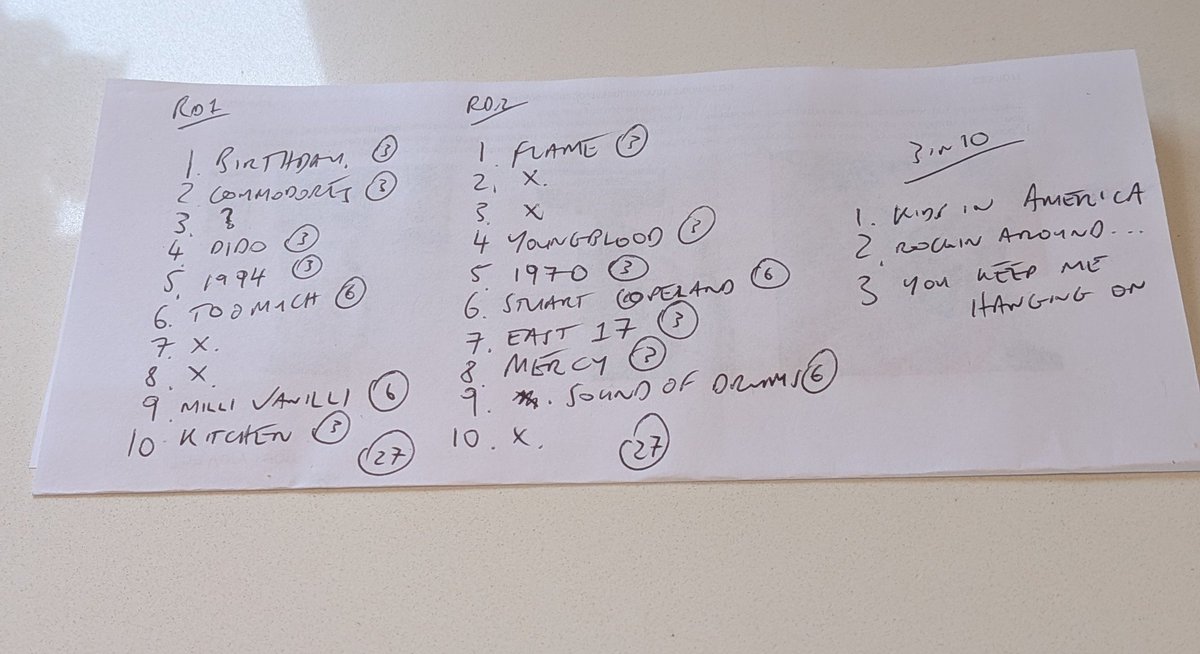 RD1
1. BIRTHDAY. 3
2. COMMODORES 3
3.
4. DIDO 3
5. 1994 3
6. TOO MUCH 6
7. X.
8. X.
9. MILLI VANILLI 6
10 KITCHEN 3
27
RD2
1. FLAME 3
2. X.
3. X
4 YOUNGBLOOD 3
5. 1970 3
6. STUART COPELAND 6
7. EAST 17 3
8. MERCY 3
9. SOUND OF DRUMS 6
10. X.
27
3 IN 10
1. KIDS IN AMERICA
2. ROCKIN AROUND...
3 YOU KEEP ME
HANGING ON